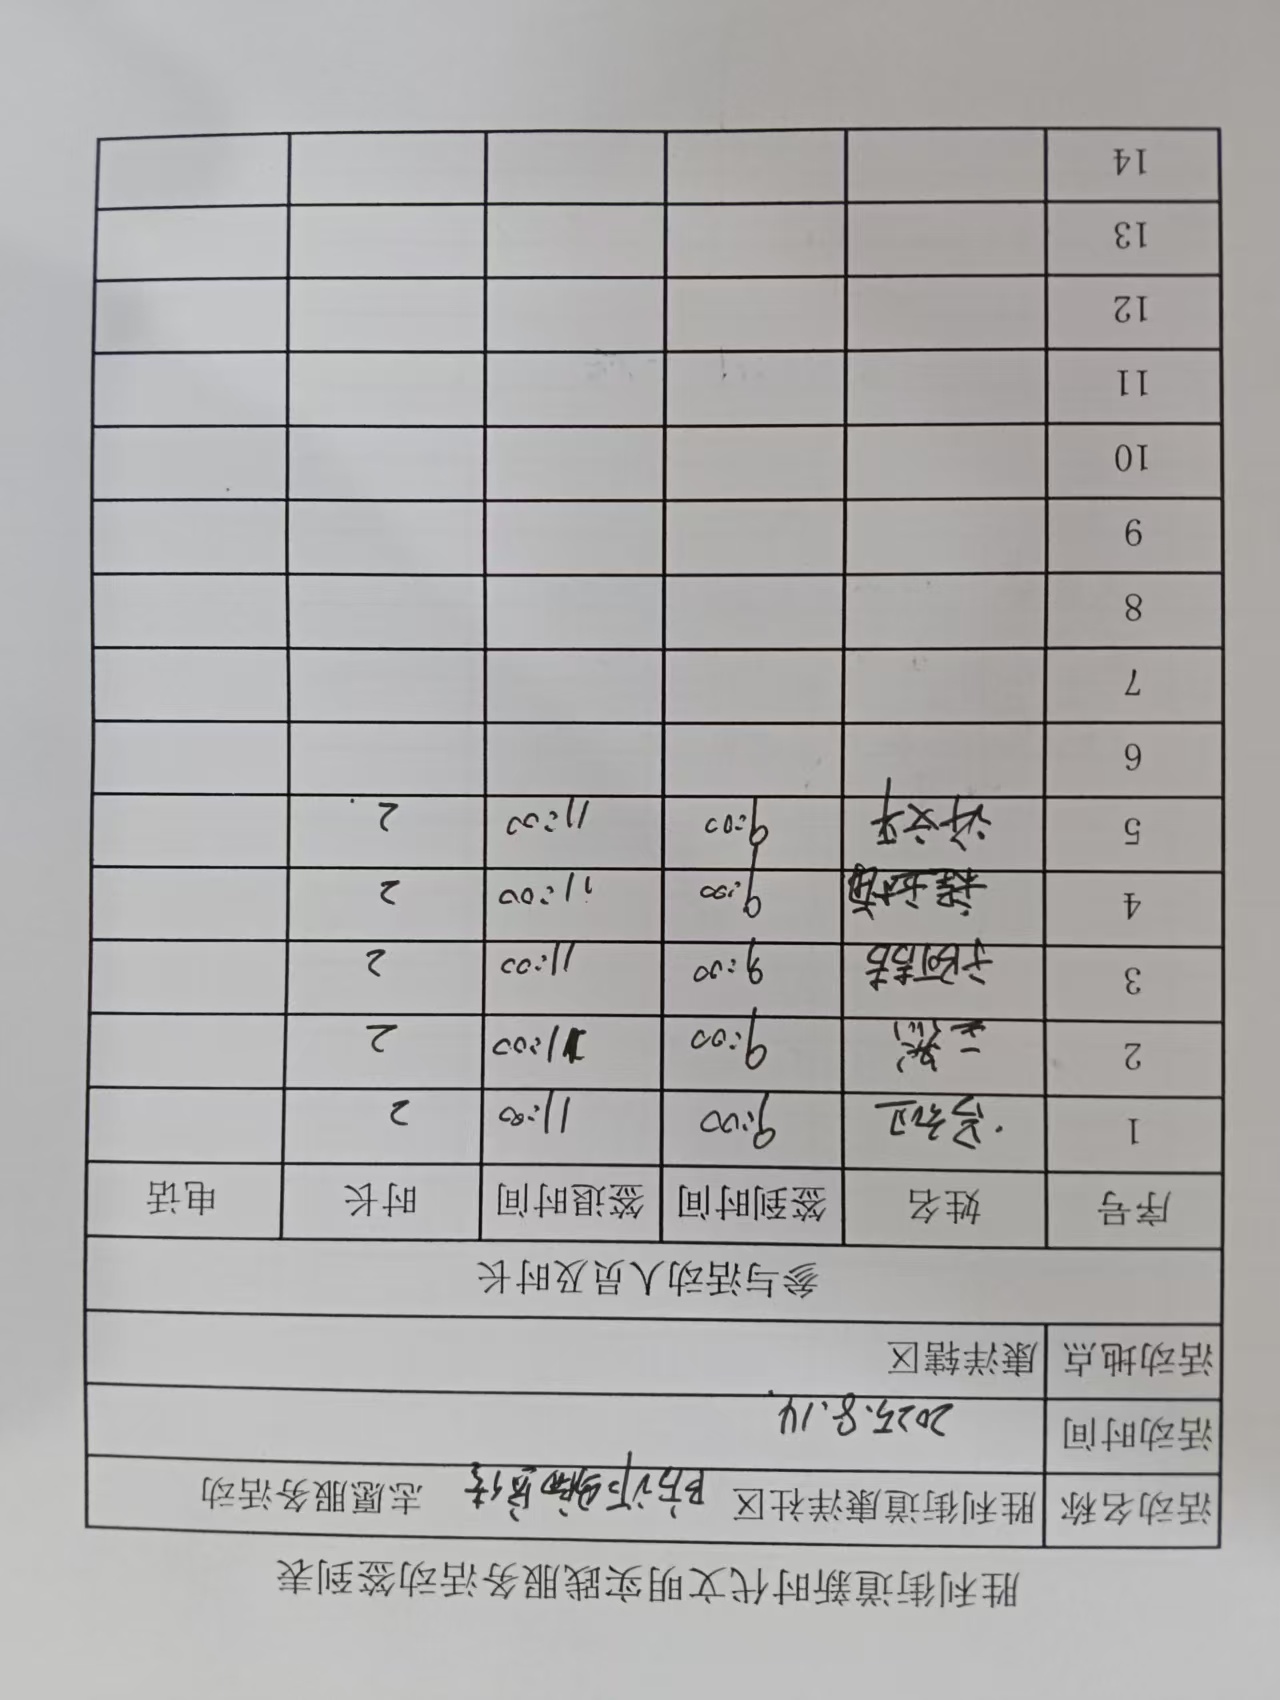 胜利街道新时代文明实践服务活动签到表
活动名称 胜利街道康洋社区 防诈骗宣传 志愿服务活动
活动时间 2025.8.14
活动地点 康洋辖区
参与活动人员及时长
序号 姓名 签到时间 签退时间 时长 电话
1 9:00 11:00 2
2 9:00 11:00 2
3 9:00 11:00 2
4 9:00 11:00 2
5 许文平 9:00 11:00 2
6
7
8
9
10
11
12
13
14